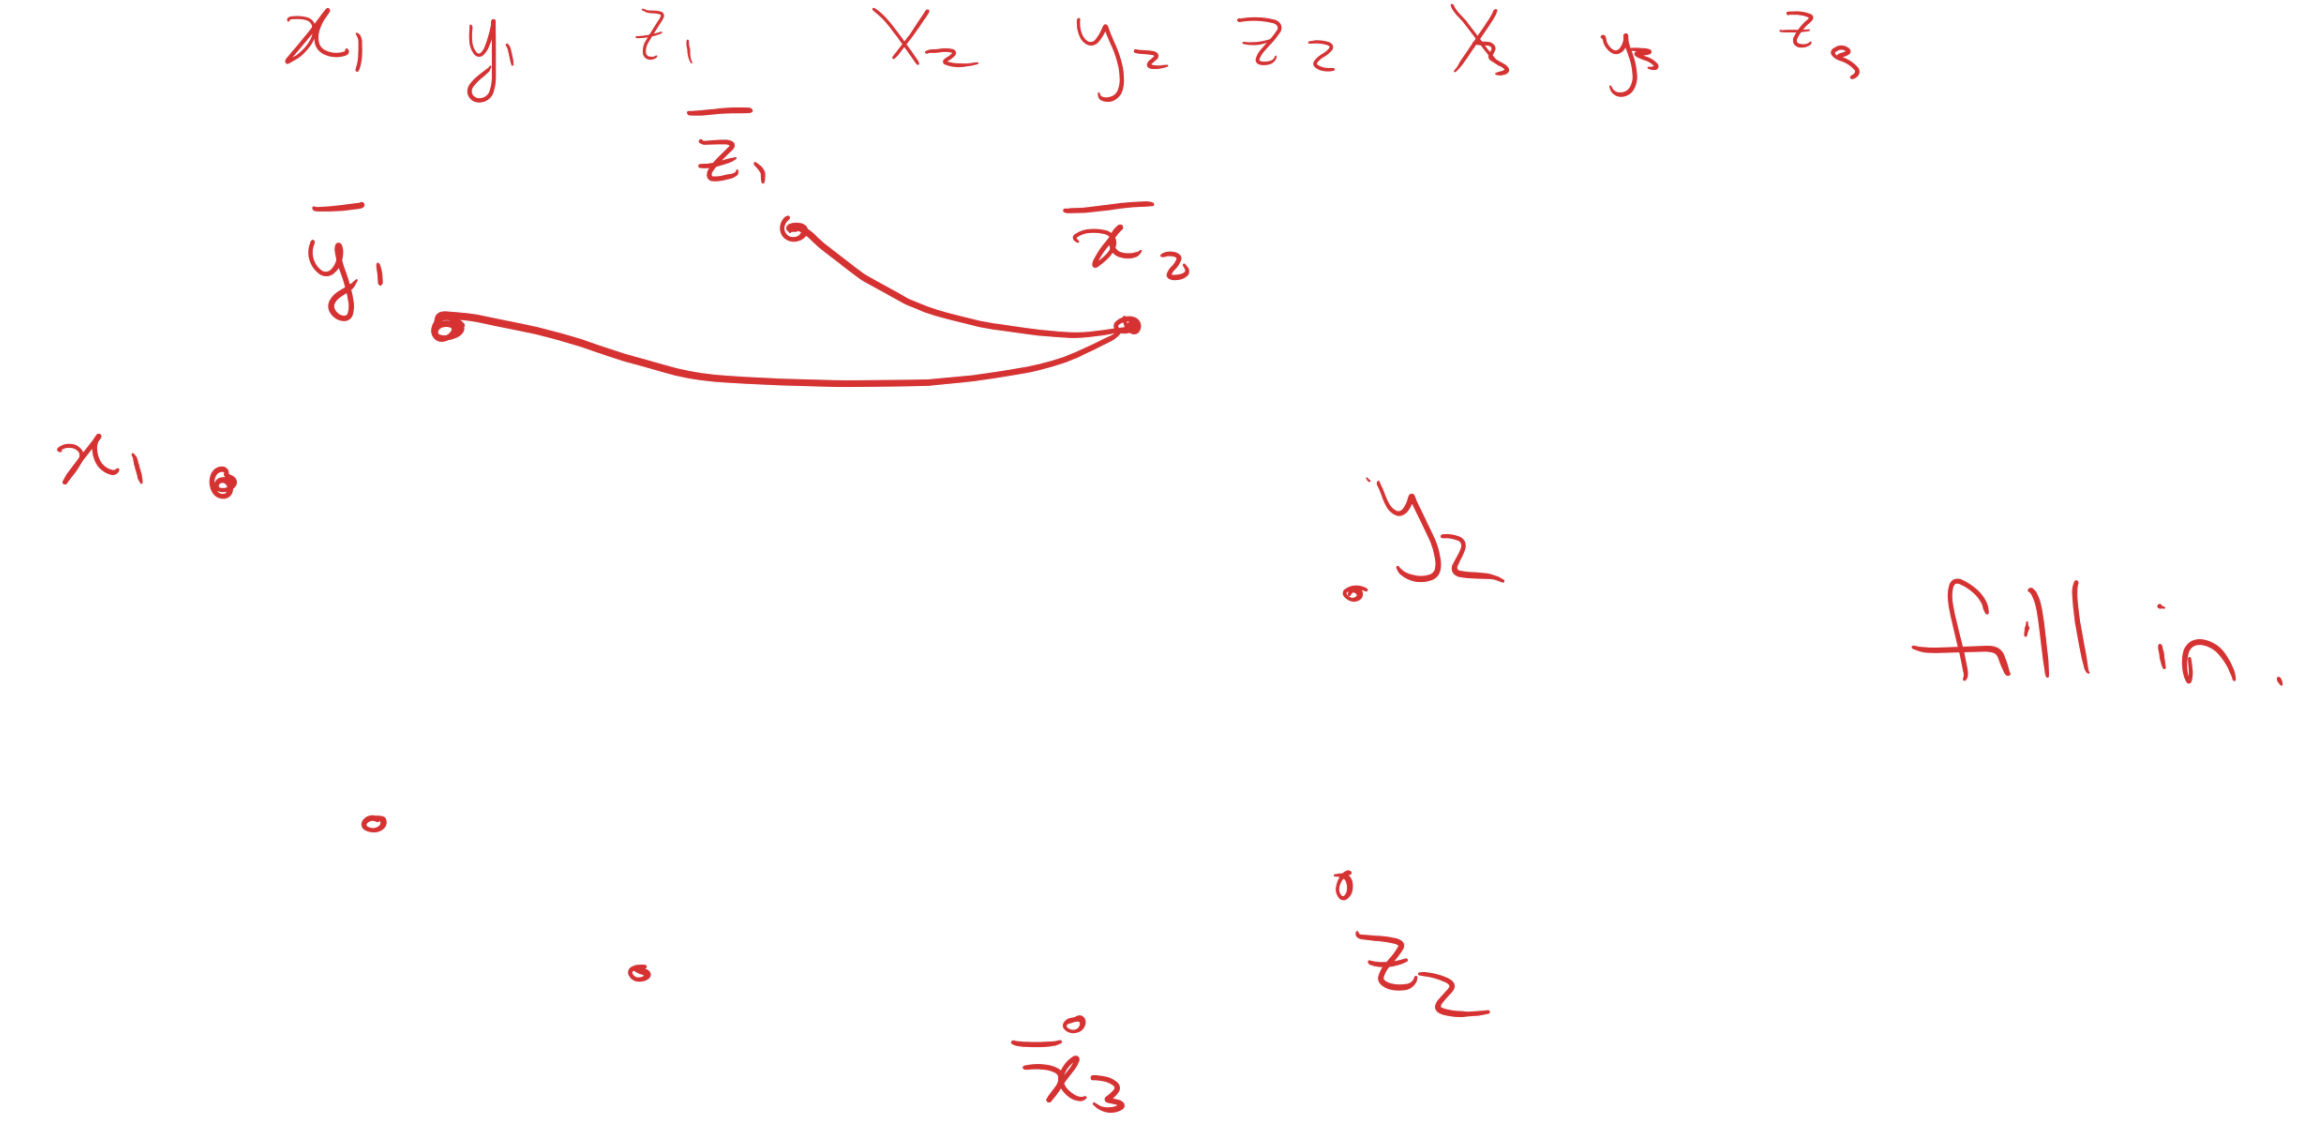 x₁ y₁ z₁ x₂ y₂ z₂ x₃ y₃ z₃
z̅₁
y̅₁ x̅₂
x₁
y₂
fill in.
z₂
x̅₃